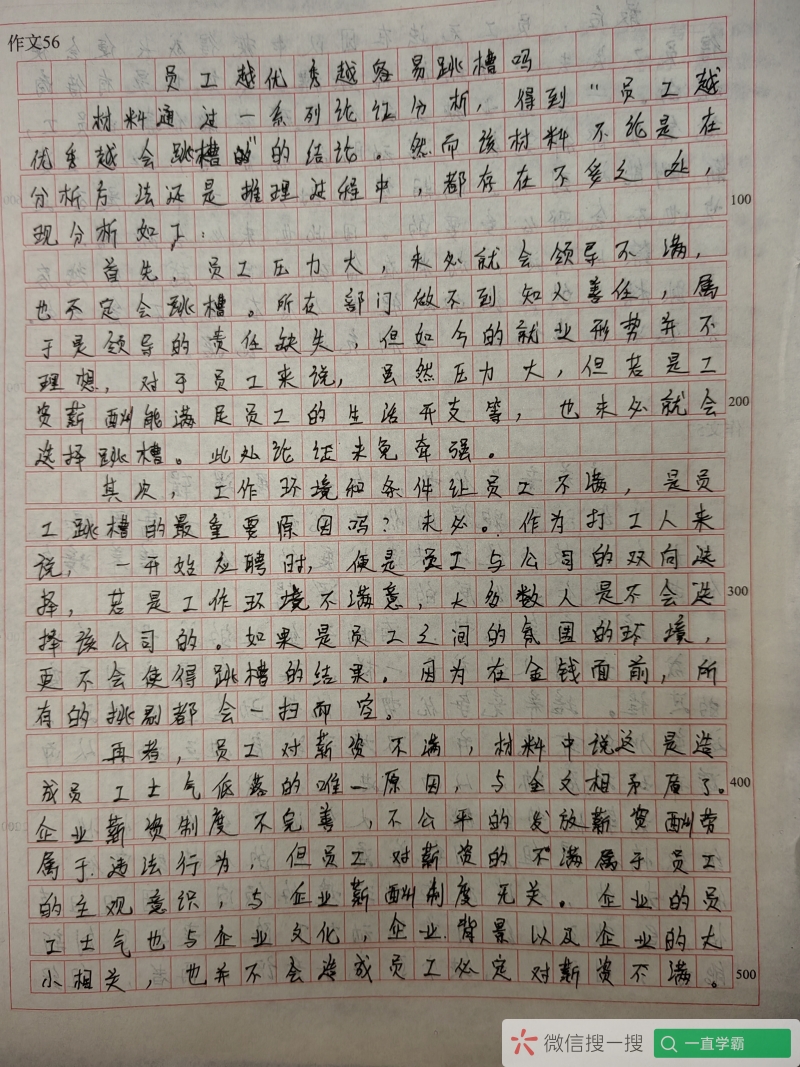 作文56
员工越优秀越容易跳槽吗
材料通过一系列论证分析，得到“员工越
优秀越会跳槽的”的结论。然而该材料不论是在
分析方法还是推理过程中，都存在不多之处，
100
现分析如下：
首先，员工压力大，未必就会领导不满，
也不定会跳槽。所在部门做不到知人善任，属
于是领导的责任缺失，但如今的就业形势并不
理想，对于员工来说，虽然压力大，但若是工
资薪酬能满足员工的生活开支等，也未必就会
200
选择跳槽。此处论证未免牵强。
其次，工作环境和条件让员工不满，是员
工跳槽的最重要原因吗？未必。作为打工人来
说，一开始应聘时，便是员工与公司的双向选
择，若是工作环境不满意，大多数人是不会选
300
择该公司的。如果是员工之间的氛围的环境，
更不会使得跳槽的结果。因为在金钱面前，所
有的挑剔都会一扫而空。
再者，员工对薪资不满，材料中说这是造
成员工士气低落的唯一原因，与全文相矛盾了。
400
企业薪资制度不完善，不公平的发放薪资酬劳
属于违法行为，但员工对薪资的不满属于员工
的主观意识，与企业薪酬制度无关。企业的员
工士气也与企业文化，企业背景以及企业的大
小相关，也并不会造成员工必定对薪资不满。
500
微信搜一搜
一直学霸